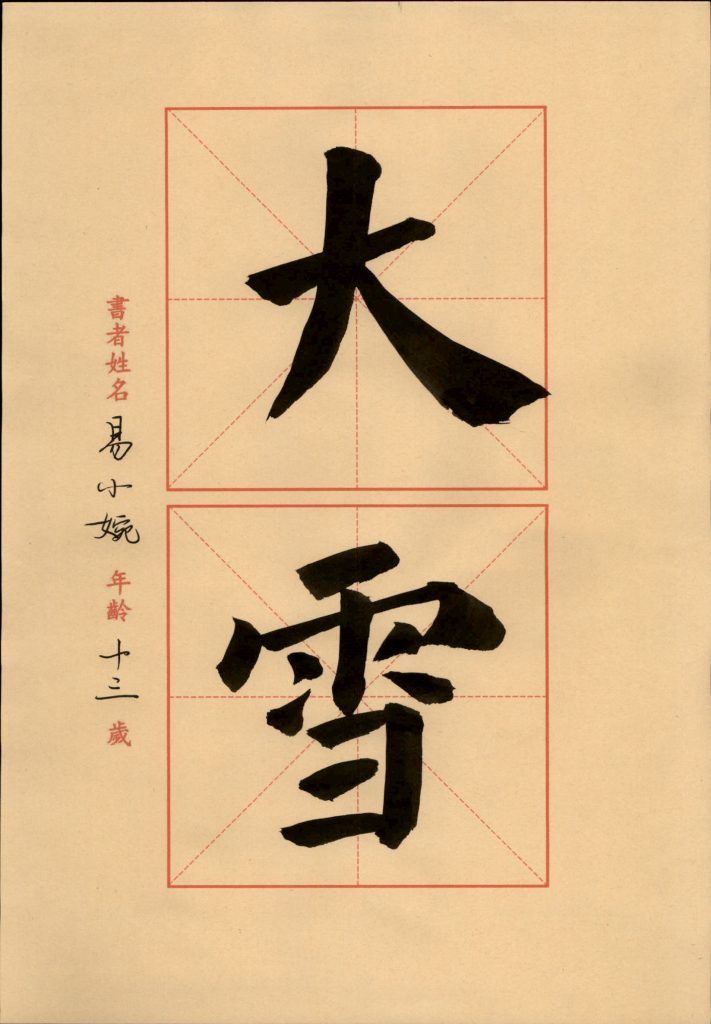 大雪
書者姓名 易小婉 年齡 十三 歲